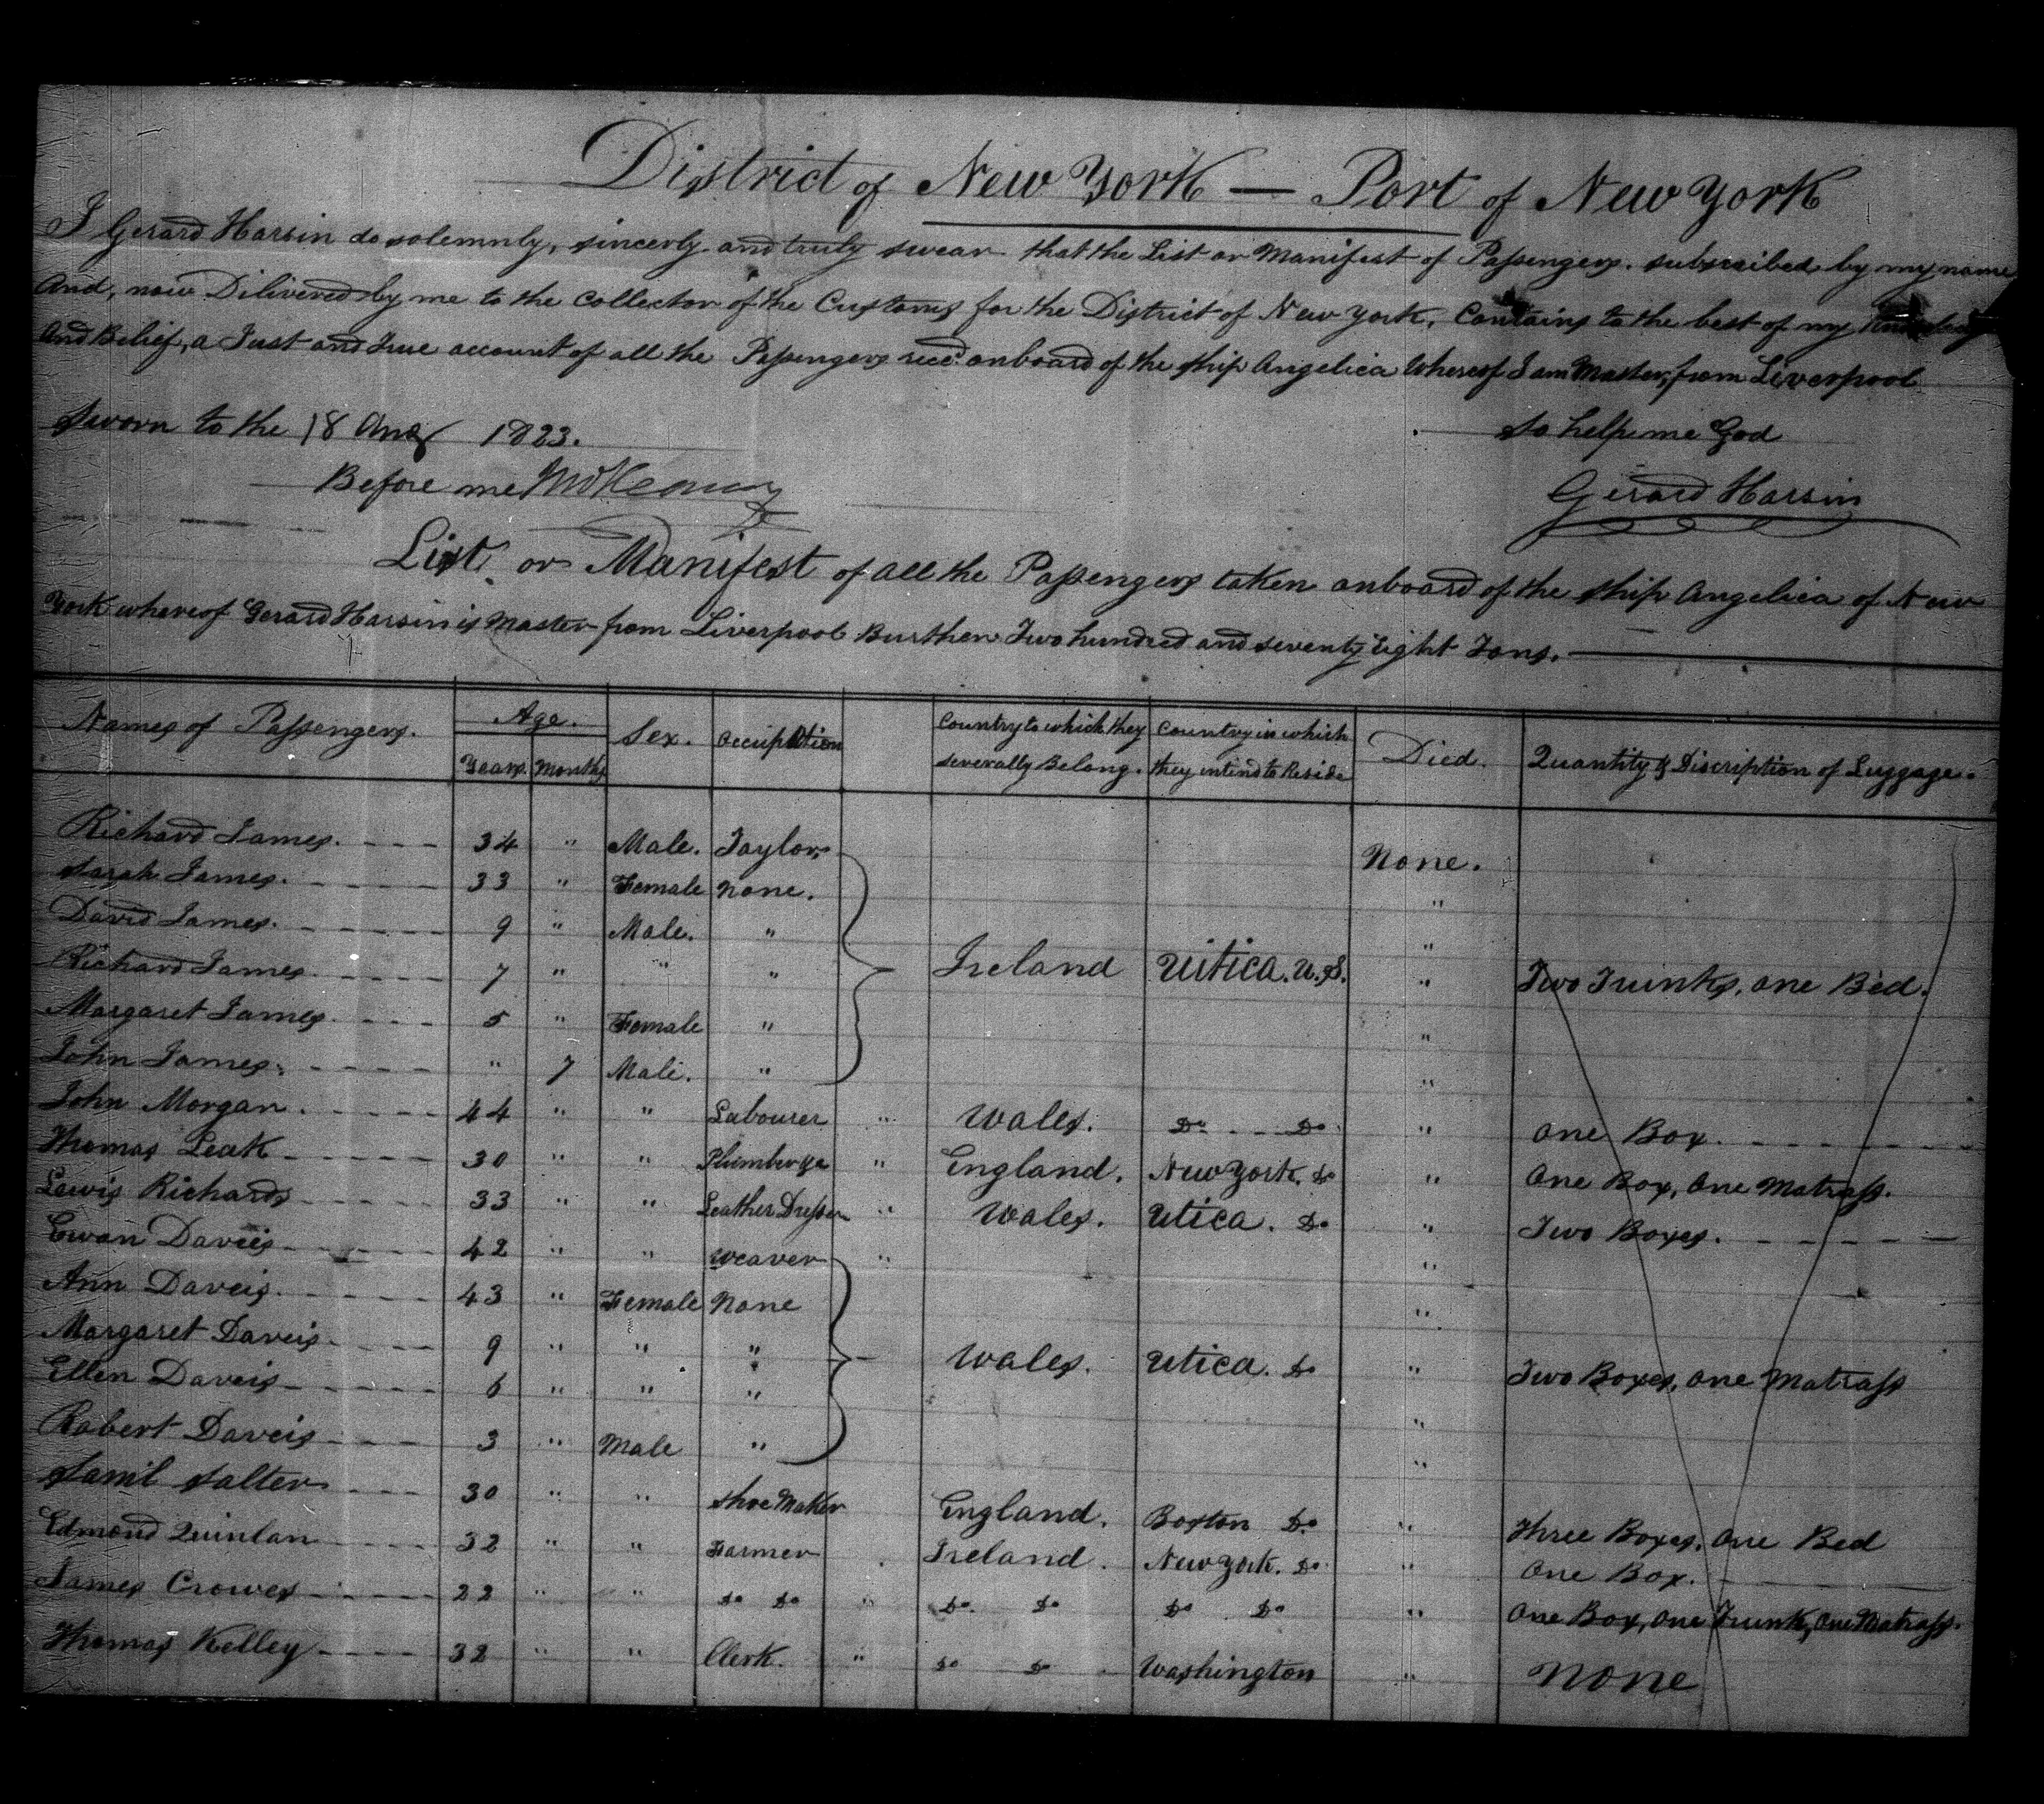 District of New York — Port of New York
I Gerard Harsin do solemnly, sincerly and truly swear that the List or Manifest of Passengers. subscribed by my name
And, now Dilivered by me to the Collector of the Customs for the District of New York, Contains to the best of my
And Belief, a Just and True account of all the Passengers recd. onboard of the ship Angelica Whereof I am Master, from Liverpool
Sworn to the 18 Aug 1823.
So help me God
Before me
Gerard Harsin
List or Manifest of all the Passengers taken onboard of the ship Angelica of New
York whereof Gerard Harsin is Master from Liverpool Burthen Two hundred and seventy Eight Tons.
Names of Passengers. Age. Sex. Occupation Country to which they Country in which Died. Quantity & Discription of Luggage.
Years. Months severally Belong. they intend to Reside
Richard James. 34 " Male. Taylor, None.
Sarah James. 33 " Female None. "
David James. 9 " Male. " "
Richard James 7 " " " Ireland Utica. U.S. " Two Trunks, one Bed.
Margaret James. 5 " Female " "
John James. " 7 Male. " "
John Morgan. 44 " " Labourer " Wales. Do Do " One Box.
Thomas Leak 30 " " " England. New York. Do " One Box, One Matrass.
Lewis Richards 33 " " Leather Dresser " Wales. Utica. Do " Two Boxes.
Ewan Daveis 42 " " Weaver " "
Ann Daveis. 43 " Female None "
Margaret Daveis 9 " " " Wales. Utica. Do " Two Boxes, One Matrass
Ellen Daveis 6 " " " "
Robert Daveis 3 " Male " "
Saml Salter 30 " " Shoe Maker England. Boston Do " Three Boxes, One Bed
Edmond Quinlan 32 " " Farmer Ireland. New York. Do " One Box.
James Crowes 22 " " Do Do " Do Do Do Do " One Box, One Trunk, One Matrass.
Thomas Kelley 32 " " Clerk. " Do Do Washington " None